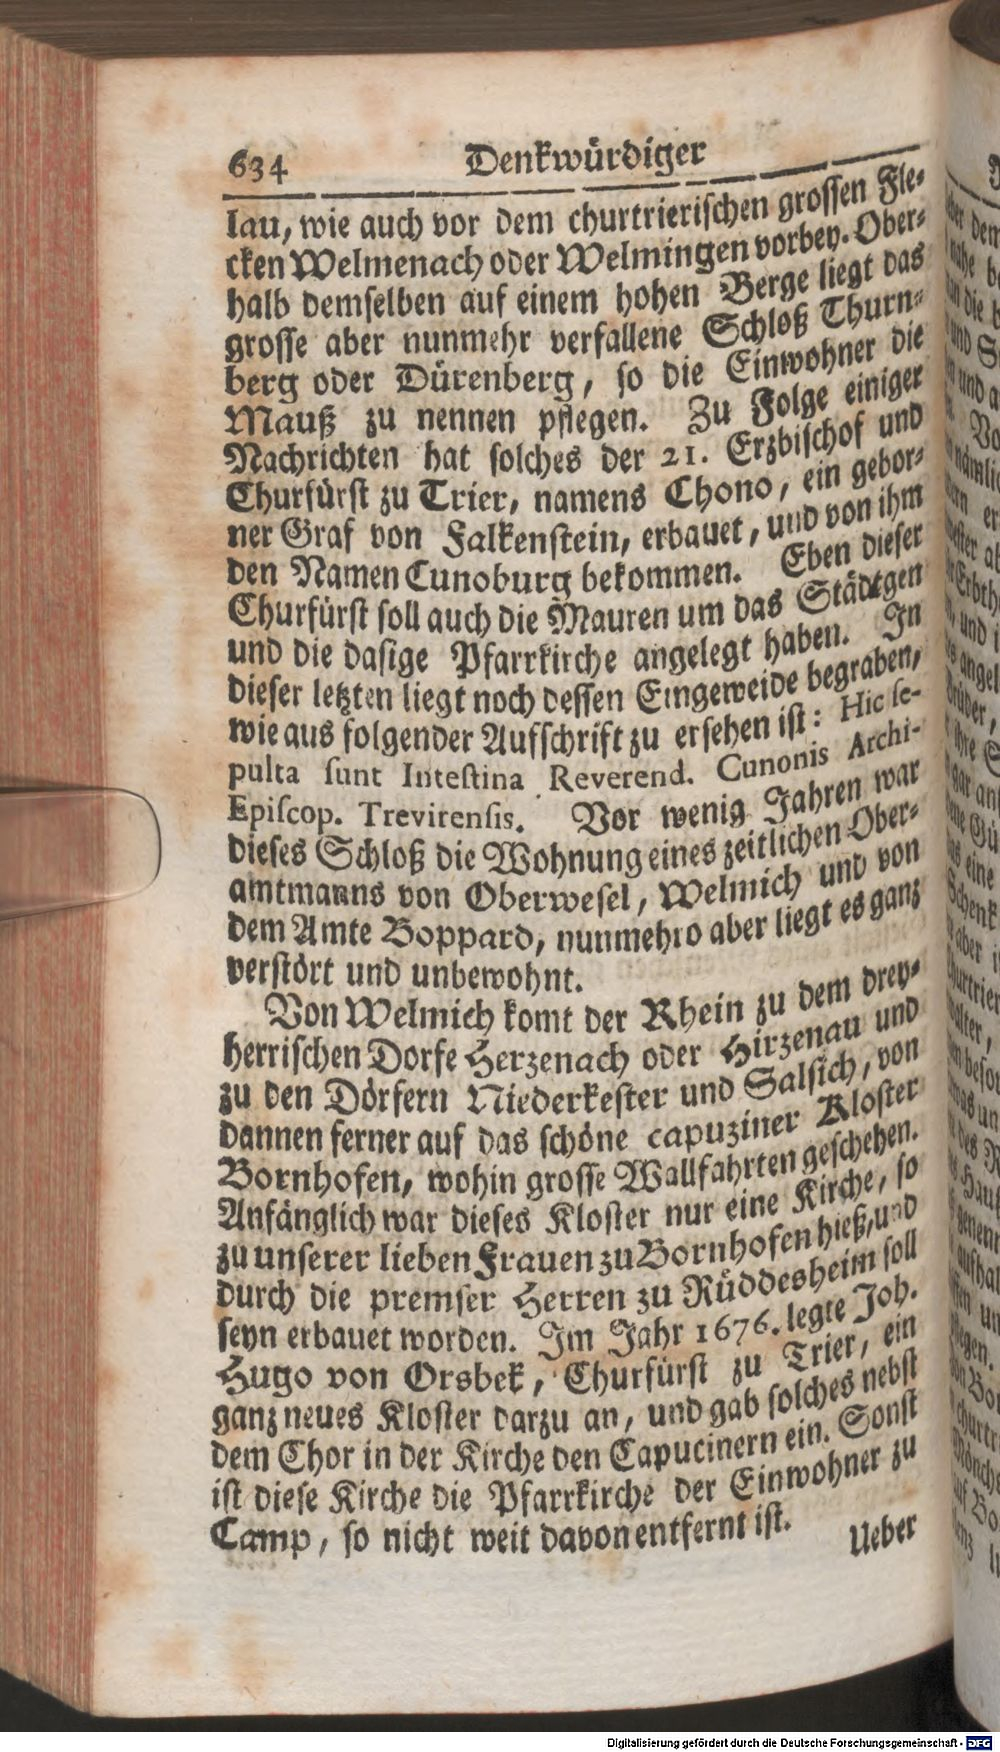 634 Denkwürdiger
lau, wie auch vor dem churtrierischen grossen Fle-
cken Welmenach oder Welmingen vorbey. Ober-
halb demselben auf einem hohen Berge liegt das
grosse aber nunmehr verfallene Schloß Thurn-
berg oder Dürenberg, so die Einwohner die
Mauß zu nennen pflegen. Zu Folge einiger
Nachrichten hat solches der 21. Erzbischof und
Churfürst zu Trier, namens Chono, ein gebor-
ner Graf von Falkenstein, erbauet, und von ihm
den Namen Cunoburg bekommen. Eben dieser
Churfürst soll auch die Mauren um das Städtgen
und die dasige Pfarrkirche angelegt haben. In
dieser letzten liegt noch dessen Eingeweide begraben,
wie aus folgender Aufschrift zu ersehen ist: Hic se-
pulta sunt Intestina Reverend. Cunonis Archi-
Episcop. Trevirensis. Vor wenig Jahren war
dieses Schloß die Wohnung eines zeitlichen Ober-
amtmanns von Oberwesel, Welmich und von
dem Amte Boppard, nunmehro aber liegt es ganz
verstört und unbewohnt.
Von Welmich komt der Rhein zu dem drey-
herrischen Dorfe Herzenach oder Hirzenau und
zu den Dörfern Niederkester und Salsich, von
dannen ferner auf das schöne capuziner Kloster
Bornhofen, wohin grosse Wallfahrten geschehen.
Anfänglich war dieses Kloster nur eine Kirche, so
zu unserer lieben Frauen zu Bornhofen hieß, und
durch die premser Herren zu Rüddesheim soll
seyn erbauet worden. Im Jahr 1676. legte Joh.
Hugo von Orsbek, Churfürst zu Trier, ein
ganz neues Kloster darzu an, und gab solches nebst
dem Chor in der Kirche den Capucinern ein. Sonst
ist diese Kirche die Pfarrkirche der Einwohner zu
Camp, so nicht weit davon entfernt ist.
Ueber
Digitalisierung gefördert durch die Deutsche Forschungsgemeinschaft - DFG